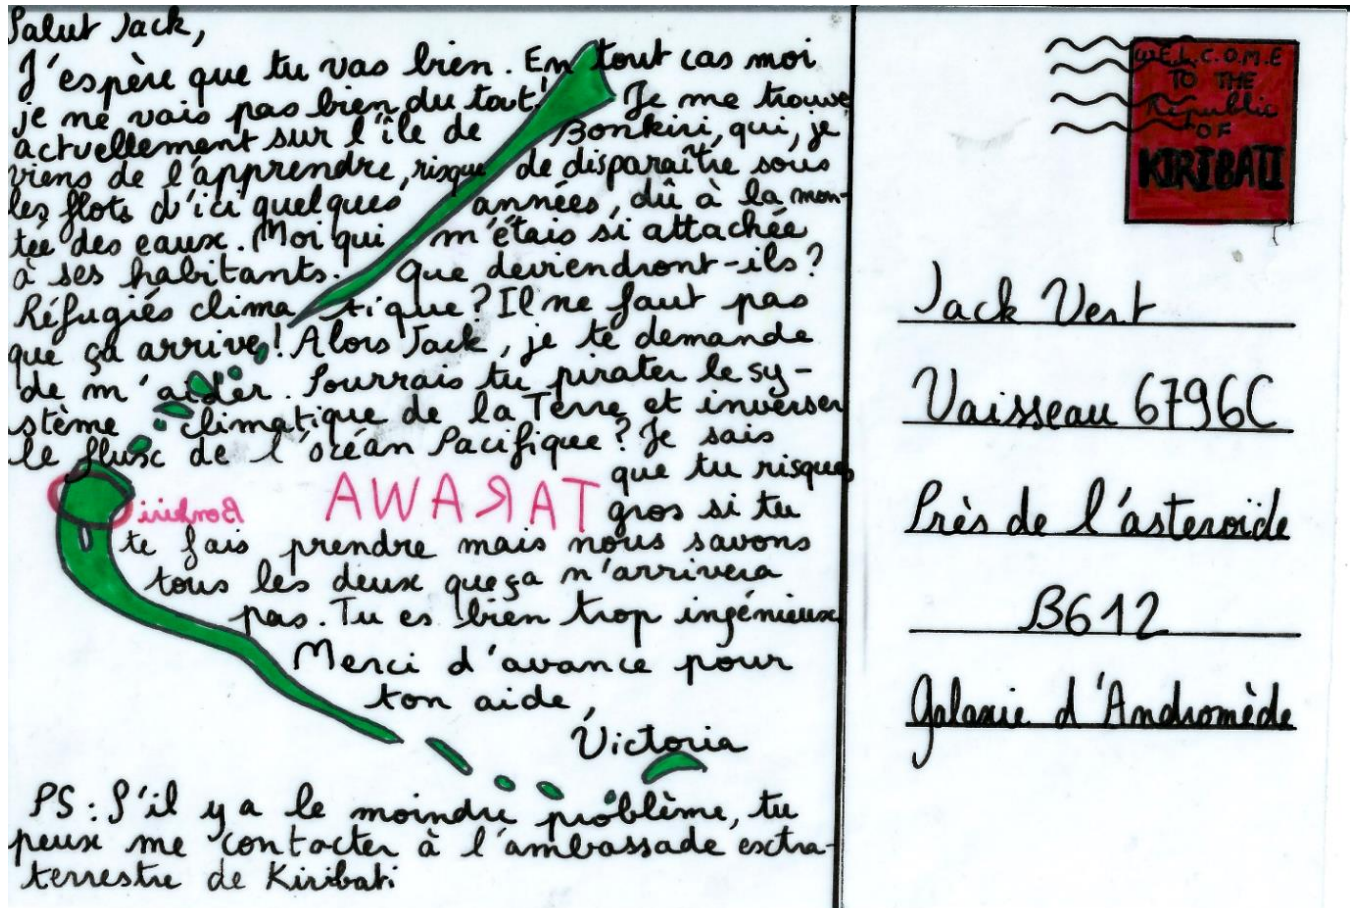 Salut Jack,
J'espère que tu vas bien. En tout cas moi
je ne vais pas bien du tout! Je me trouve
actuellement sur l'île de Bonkiri, qui, je
viens de l'apprendre, risque de disparaître sous
les flots d'ici quelques années, dû à la mon-
tée des eaux. Moi qui m'étais si attachée
à ses habitants. Que deviendront-ils?
Réfugiés clima tique? Il ne faut pas
que ça arrive! Alors Jack, je te demande
de m'aider. Pourrais tu pirater le sy-
stème climatique de la Terre et inverser
le flux de l'océan Pacifique? Je sais
que tu risques
Bonkiri
TARAWA
gros si tu
te fais prendre mais nous savons
tous les deux que ça n'arrivera
pas. Tu es bien trop ingénieux
Merci d'avance pour
ton aide,
Victoria
PS: S'il y a le moindre problème, tu
peux me contacter à l'ambassade extra-
terrestre de Kiribati
W.E.L.C.O.M.E
TO THE
Républic
OF
KIRIBATI
Jack Vert
Vaisseau 6796C
Près de l'asteroïde
B612
Galaxie d'Andromède